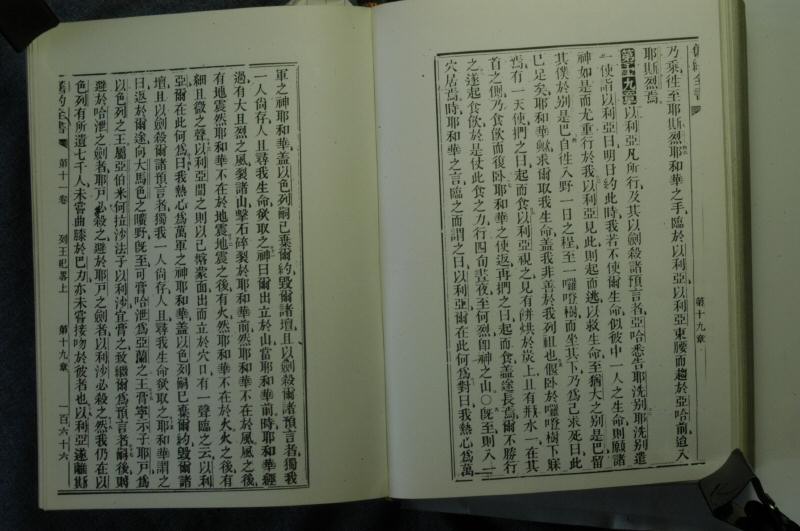 舊約全書
第十九章
乃乘往至耶斯烈耶和華之手、臨於以利亞、以利亞束腰而趨於亞哈前、迨入
耶斯烈焉
第十九章以利亞凡所行、及其以劍殺諸預言者、亞哈悉告耶洗別、耶洗別遣
一使詣以利亞曰、明日約此時、我若不使爾生命、似彼中一人之生命、則願諸
神如是而尤重行於我、以利亞見此則起而逃、以救生命、至猶大之別是巴、留
其僕於別是巴、自往入野、一日之程、至一囉噔樹而坐其下、乃為己求死曰、此
已足矣、耶和華歟、求爾取我生命、蓋我非善於我列祖也、偃臥於囉噔樹下
焉、有一天使捫之曰、起而食、以利亞視之、見有餅烘於炭上、且有瓶水一、在其
首之側、乃食飲而復臥、耶和華之使返、再捫之曰、起而食、蓋途長焉、爾不勝行
之、遂起食飲、於是仗此食之力、行四旬晝夜、至何烈、即神之山、○既至、則入一
穴居焉、時耶和華之言、臨之而謂之曰、以利亞、爾在此何為、對曰、我熱心為萬
軍之神耶和華、蓋以色列嗣、已棄爾約、毀爾諸壇、且以劍殺爾諸預言者、獨我
一人尚存、人且尋我生命、欲取之、神曰、爾出立於山、當耶和華前、時耶和華經
過、有大且烈之風、裂諸山、擊石碎裂於耶和華前、然耶和華不在於風、風之後、
有地震、然耶和華不在於地震、地震之後、有火、然耶和華不在於火、火之後、有
細且微之聲、以利亞聞之、則以己裳蒙面、出而立於穴口、有一聲臨之云、以利
亞、爾在此何為、曰、我熱心為萬軍之神耶和華、蓋以色列嗣、已棄爾約、毀爾諸
壇、且以劍殺爾諸預言者、獨我一人尚存、人且尋我生命、欲取之、耶和華謂之
曰、返於爾途、向大馬色之曠野、既至、可膏哈泄為亞蘭之王、膏寧示子耶戶、為
以色列之王、屬亞伯米何拉、沙法子以利沙、宜膏之、致繼爾為預言者、嗣後、則
避於哈泄之劍者、耶戶必殺之、避於耶戶之劍者、以利沙必殺之、然我仍在以
色列有所遺七千人、未嘗曲膝於巴力、亦未嘗接吻於彼者也、以利亞遂離斯
舊約全書 第十一卷 列王紀畧上 第十九章 一百六十六